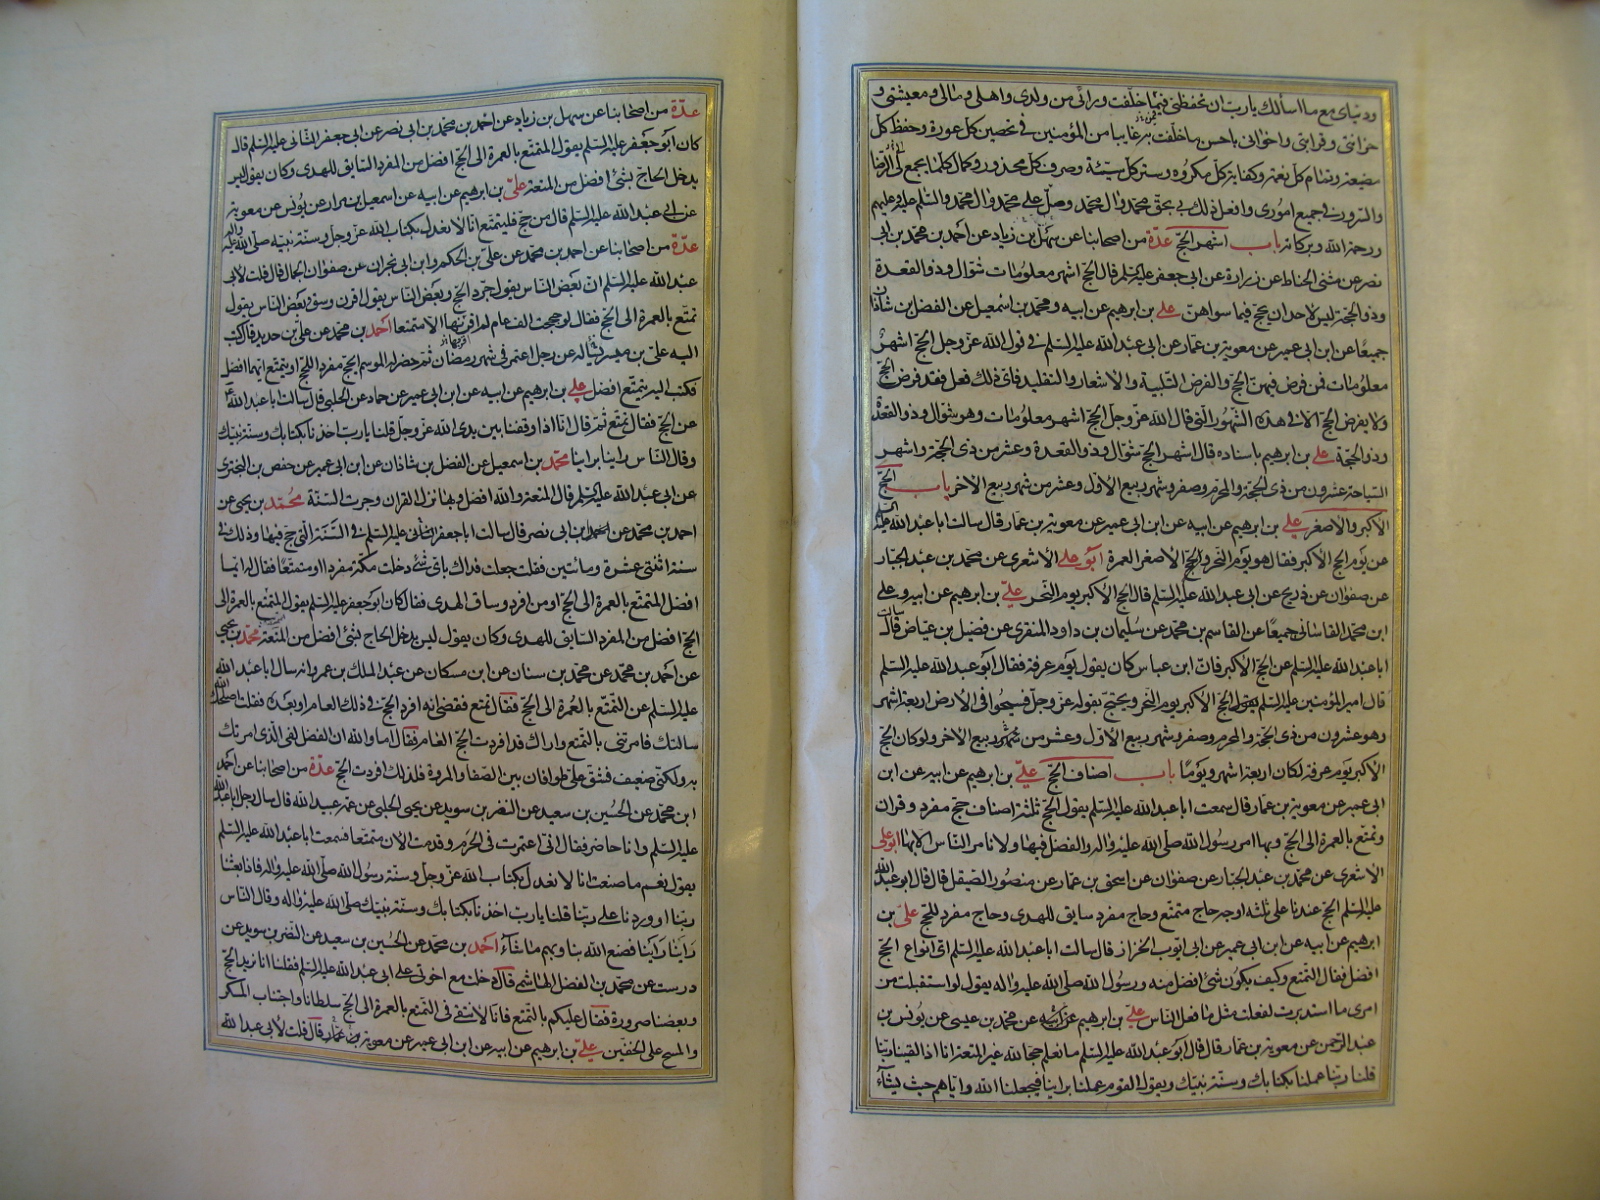 ودنياى مع ما اسألك يارب ان تحفظنى فيما خلفت ورائى من ولدى واهلى ومالى ومعيشتى و
حزانتى وقرابتى واخوانى باحسن ما خلفت به غايبا من المؤمنين فى تحصين كل عورة وحفظ كل
مضيعة وتمام كل نعمة وكفاية كل مكروه وستر كل سيئة وصرف كل محذور وكمال كلما يجمع لى الرضا
والسرور فى جميع امورى وافعل ذلك بى بحق محمد وال محمد وصل على محمد وال محمد والسلم عليه وعليهم
ورحمة الله وبركاته باب اشهر الحج عدة من اصحابنا عن سهل بن زياد عن احمد بن محمد بن ابى
نصر عن مثنى الحناط عن زرارة عن ابى جعفر عليه السلم قال الحج اشهر معلومات شوال وذو القعدة
وذو الحجة ليس لاحد ان يحج فيما سواهن على بن ابرهيم عن ابيه ومحمد بن اسمعيل عن الفضل بن شاذان
جميعا عن ابن ابى عمير عن معوية بن عمار عن ابى عبد الله عليه السلم فى قول الله عز وجل الحج اشهر
معلومات فمن فرض فيهن الحج والفرض التلبية والاشعار والتقليد فاى ذلك فعل فقد فرض الحج
ولا يفرض الحج الا فى هذه الشهور التى قال الله عز وجل الحج اشهر معلومات وهو شوال وذو القعدة
وذو الحجة على بن ابرهيم باسناده قال اشهر الحج شوال وذو القعدة وعشر من ذى الحجة واشهر
السياحة عشرون من ذى الحجة والمحرم وصفر وشهر ربيع الاول وعشر من شهر ربيع الاخر باب الحج
الاكبر والاصغر على بن ابرهيم عن ابيه عن ابن ابى عمير عن معوية بن عمار قال سالت ابا عبد الله عليه السلم
عن يوم الحج الاكبر فقال هو يوم النحر والحج الاصغر العمرة ابو على الاشعرى عن محمد بن عبد الجبار
عن صفوان عن ذريح عن ابى عبد الله عليه السلم قال الحج الاكبر يوم النحر على بن ابرهيم عن ابيه وعلى
ابن محمد القاسانى جميعا عن القاسم بن محمد عن سليمان بن داود المنقرى عن فضيل بن عياض قال سالت
ابا عبد الله عليه السلم عن الحج الاكبر فان ابن عباس كان يقول يوم عرفة فقال ابو عبد الله عليه السلم
قال امير المؤمنين عليه السلم يقول الحج الاكبر يوم النحر ويحتج بقوله عز وجل فسيحوا فى الارض اربعة اشهر
وهو عشرون من ذى الحجة والمحرم وصفر وشهر ربيع الاول وعشر من شهر ربيع الاخر ولو كان الحج
الاكبر يوم عرفة لكان اربعة اشهر ويوما باب اصناف الحج على بن ابرهيم عن ابيه عن ابن
ابى عمير عن معوية بن عمار قال سمعت ابا عبد الله عليه السلم يقول الحج ثلثة اصناف حج مفرد وقران
وتمتع بالعمرة الى الحج وبها امر رسول الله صلى الله عليه واله والفضل فيها ولا نامر الناس الا بها ابو على
الاشعرى عن محمد بن عبد الجبار عن صفوان عن اسحق بن عمار عن منصور الصيقل قال قال ابو عبد الله
عليه السلم الحج عندنا على ثلثة اوجه حاج متمتع وحاج مفرد سايق للهدى وحاج مفرد للحج على بن
ابرهيم عن ابيه عن ابن ابى عمير عن ابى ايوب الخزاز قال سالت ابا عبد الله عليه السلم اى انواع الحج
افضل فقال التمتع وكيف يكون شئ افضل منه ورسول الله صلى الله عليه واله يقول لو استقبلت من
امرى ما استدبرت لفعلت مثل ما فعل الناس على بن ابرهيم عن محمد بن عيسى عن يونس بن
عبد الرحمن عن معوية بن عمار قال قال ابو عبد الله عليه السلم ما نعلم حجا لله غير المتعة انا اذا لقينا ربنا
قلنا ربنا عملنا بكتابك وسنة نبيك ويقول القوم عملنا براينا فيجعلنا الله واياهم حيث يشاء
عدة من اصحابنا عن سهل بن زياد عن احمد بن محمد بن ابى نصر عن ابى جعفر الثانى عليه السلم قال
كان ابو جعفر عليه السلم يقول المتمتع بالعمرة الى الحج افضل من المفرد السايق للهدى وكان يقول ليس
يدخل الحاج بشئ افضل من المتعة على بن ابرهيم عن ابيه عن اسمعيل بن مرار عن يونس عن معوية
عن ابى عبد الله عليه السلم قال من حج فليتمتع انا لا نعدل بكتاب الله عز وجل وسنة نبيه صلى الله عليه واله
عدة من اصحابنا عن احمد بن محمد عن على بن الحكم وابن ابى نجران عن صفوان الجمال قال قلت لابى
عبد الله عليه السلم ان بعض الناس يقول جرد الحج وبعض الناس يقول اقرن وسق وبعض الناس يقول
تمتع بالعمرة الى الحج فقال لو حججت الف عام لم اقرنها الا متمتعا احمد بن محمد عن على بن حديد قال كتب
اليه على بن ميسر يساله عن رجل اعتمر فى شهر رمضان ثم حضر له الموسم ايحج مفردا للحج او يتمتع ايهما افضل
فكتب اليه يتمتع افضل على بن ابرهيم عن ابيه عن ابن ابى عمير عن حماد عن الحلبى قال سالت ابا عبد الله
عن الحج فقال تمتع ثم قال انا اذا وقفنا بين يدى الله عز وجل قلنا يارب اخذنا بكتابك وسنة نبيك
وقال الناس راينا براينا محمد بن اسمعيل عن الفضل بن شاذان عن ابن ابى عمير عن حفص بن البخترى
عن ابى عبد الله عليه السلم قال المتعة والله افضل وبها نزل القران وجرت السنة محمد بن يحيى عن
احمد بن محمد عن احمد بن ابى نصر قال سالت ابا جعفر الثانى عليه السلم فى السنة التى حج فيها وذلك فى
سنة اثنتى عشرة ومائتين فقلت جعلت فداك باى شئ دخلت مكة مفردا او متمتعا فقال له ايما
افضل المتمتع بالعمرة الى الحج او من افرد وساق الهدى فقال كان ابو جعفر عليه السلم يقول المتمتع بالعمرة الى
الحج افضل من المفرد السايق للهدى وكان يقول ليس يدخل الحاج بشئ افضل من المتعة محمد بن يحيى
عن احمد بن محمد عن محمد بن سنان عن ابن مسكان عن عبد الملك بن عمرو انه سال ابا عبد الله
عليه السلم عن التمتع بالعمرة الى الحج فقال تمتع فقضى انه افرد الحج فى ذلك العام او بعده فقلت اصلحك الله
سالتك فامرتنى بالتمتع واراك قد افردت الحج العام فقال اما والله ان الفضل لفى الذى امرتك
به ولكنى ضعيف فشق على طوافان بين الصفا والمروة فلذلك افردت الحج عدة من اصحابنا عن احمد
ابن محمد عن الحسين بن سعيد عن النضر بن سويد عن يحيى الحلبى عن عمه عبيد الله قال سال رجل ابا عبد الله
عليه السلم وانا حاضر فقال انى اعتمرت فى الحرم وقدمت الان متمتعا فسمعت ابا عبد الله عليه السلم
يقول نعم ما صنعت انا لا نعدل بكتاب الله عز وجل وسنة رسول الله صلى الله عليه واله فاذا بعثنا
ربنا او وردنا على ربنا قلنا يارب اخذنا بكتابك وسنة نبيك صلى الله عليه واله وقال الناس
راينا راينا فصنع الله بنا وبهم ما شاء احمد بن محمد عن الحسين بن سعيد عن النضر بن سويد عن
درست عن محمد بن الفضل الهاشمى قال دخلت مع اخوتى على ابى عبد الله عليه السلم فقلنا انا نريد الحج
وبعضنا صرورة فقال عليكم بالتمتع فانا لا نتقى فى التمتع بالعمرة الى الحج سلطانا واجتناب المسكر
والمسح على الخفين على بن ابرهيم عن ابيه عن ابن ابى عمير عن معوية بن عمار قال قلت لابى عبد الله